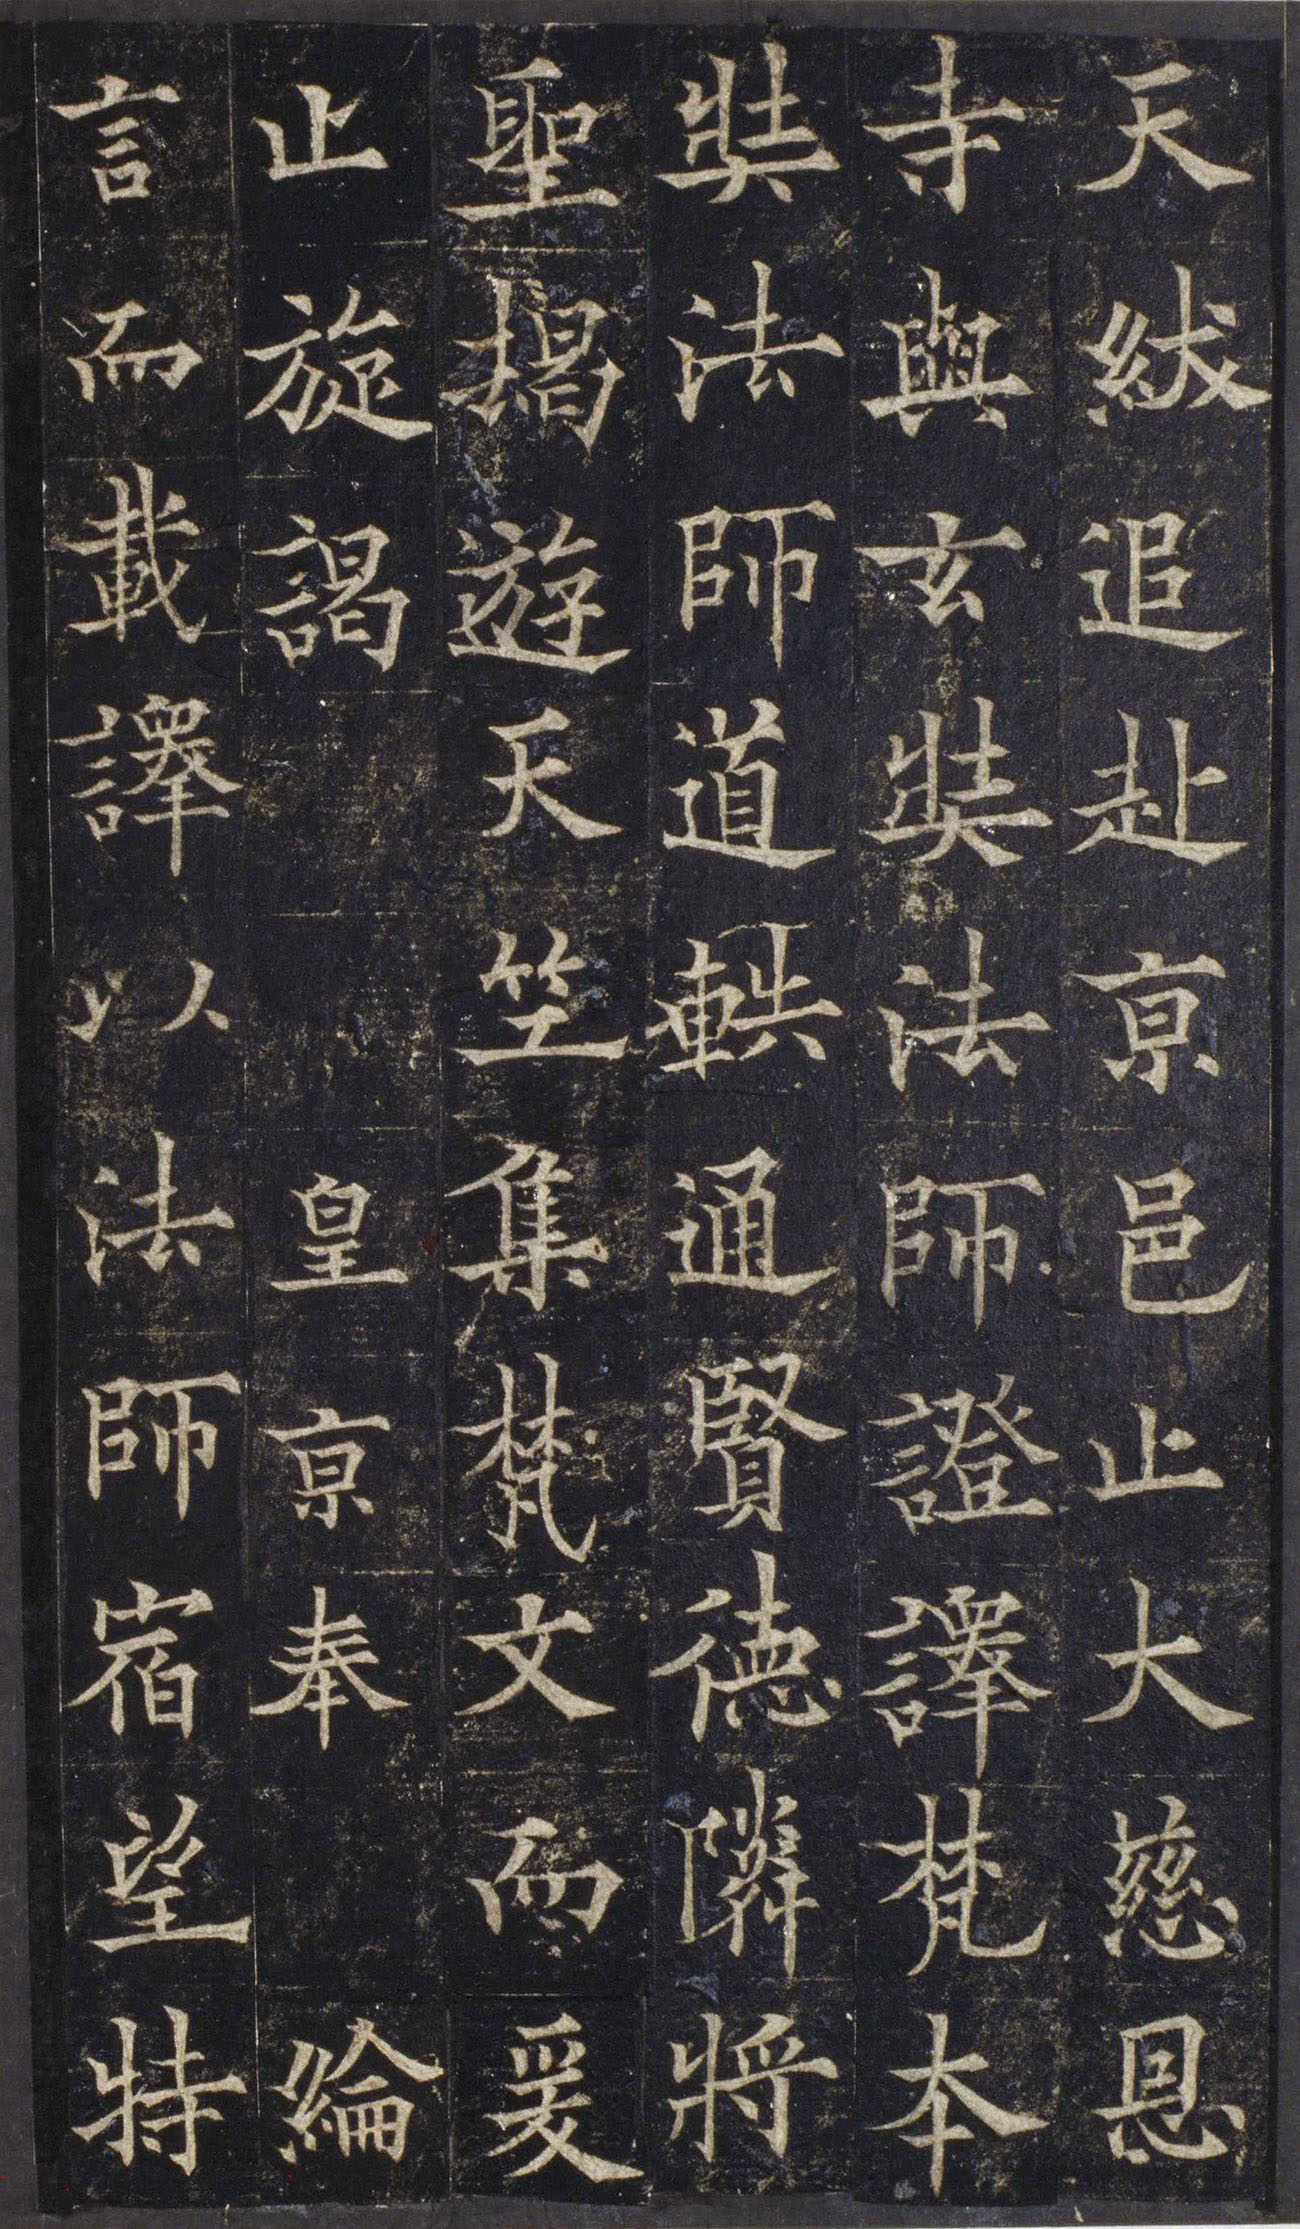 天紱追赴亰邑止大慈恩
寺與玄奘法師證譯梵本
奘法師道輁通賢德隣將
聖揭遊天竺集梵文而爰
止旋謁皇亰奉綸
言而載譯以法師宿望特